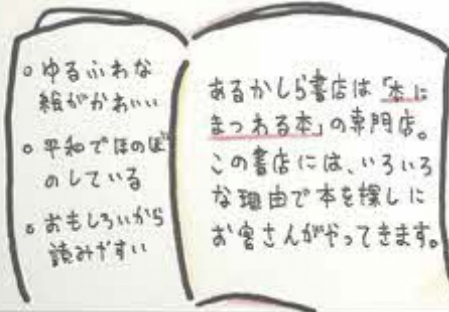 ○ゆるふわな
絵がかわいい
○平和でほのぼ
のしている
○おもしろいから
読みやすい
あるかしら書店は「本に
まつわる本」の専門店。
この書店には、いろいろ
な理由で本を探しに
お客さんがやってきます。